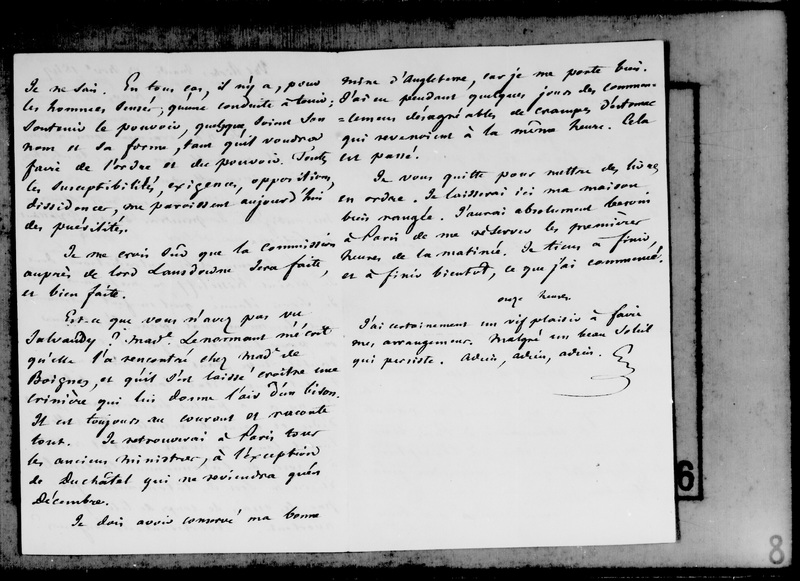 Je ne sais. En tout cas, il n'y a, pour
les hommes sensés, qu'une conduite à tenir ;
soutenir le pouvoir, quelque soient son
nom et sa forme, tant qu'il voudra
faire de l'ordre et du pouvoir. Toutes
les susceptibilités, exigences, oppositions,
dissidences, me paroissent aujourd'hui
des puérilités.
Je me crois sûr que la commission
auprès de lord Lansdowne sera faite,
et bien faite.
Est-ce que vous n'avez pas vu
Salvandy ? Made. Lenormant m'écrit
qu'elle l'a rencontré chez Made. de
Boignes, et qu'il s'est laissé croître une
crinière qui lui donne l'air d'un bison.
Il est toujours au courant et raconte
tout. Je retrouverai à Paris tous
les anciens ministres, à l'exception
de Duchâtel qui ne reviendra qu'en
Décembre.
Je dois avoir conservé ma bonne
mine d'Angleterre, car je me porte bien.
J'ai eu pendant quelques jours des commen-
=cemens désagréables de crampes d'estomac
qui revenoient à la même heure. Cela
est passé.
Je vous quitte pour mettre des livres
en ordre. Je laisserai ici ma maison
bien rangée. J'aurai absolument besoin
à Paris de me réserver les premières
heures de la matinée. Je tiens à finir,
et à finir bientôt, ce que j'ai commencé.
onze heures.
J'ai certainement un vif plaisir à faire
mes arrangemens. Malgré un beau soleil
qui persiste. Adieu, adieu, adieu.
6
8